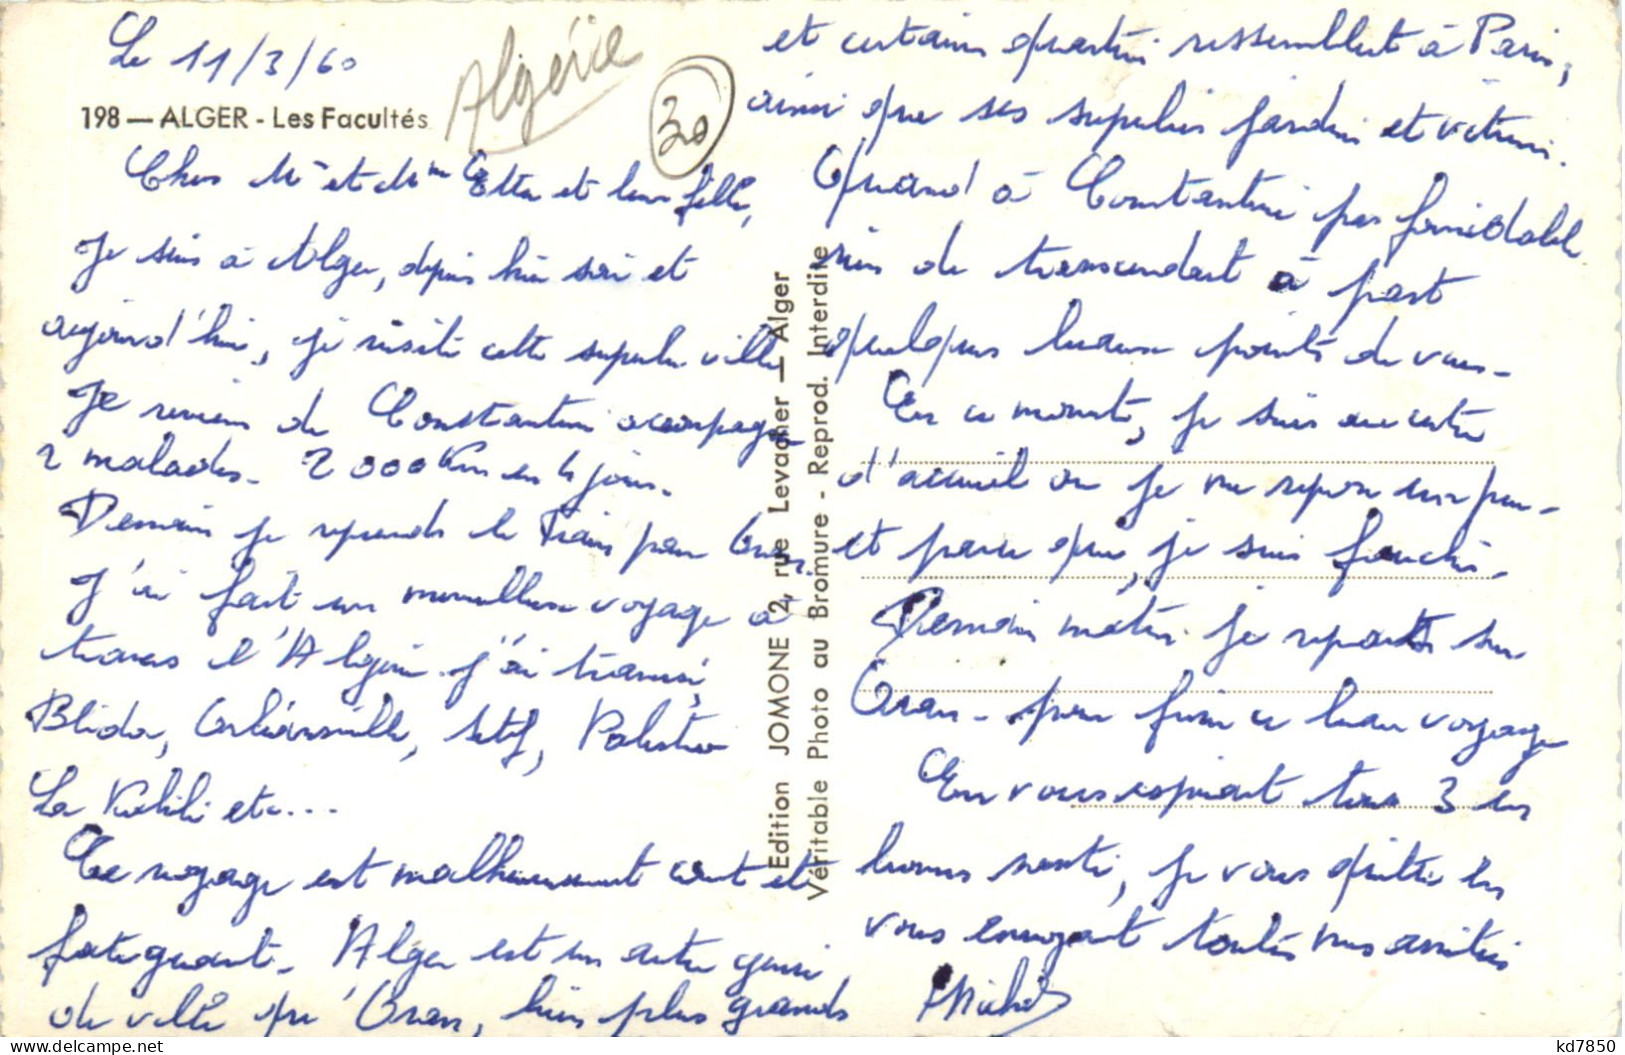 Le 11/3/60
Algérie
30
198 — ALGER - Les Facultés
Chers Mr et Mme et leur fille,
Je suis à Alger, depuis hier soir et
aujourd'hui, je visite cette superbe ville
Je reviens de Constantine accompagner
2 malades. 2000 Km en 4 jours.
Demain je reprends le Train pour Oran.
J'ai fait un merveilleux voyage à
travers l'Algérie j'ai traversé,
Blida, Orléansville, Sétif, Palestro
La Kabilie etc...
Ce voyage est malheureusement court et
fatiguant. Alger est un autre genre
de ville qu'Oran, bien plus grande
et certains quartiers ressemblent à Paris,
ainsi que ses superbes jardins et vitrines.
Quand à Constantine pas formidable
rien de transcendant à part
quelques beaux points de vues.
En ce moment, je suis au centre
d'accueil ou je me repose un peu.
et parce que, je suis fauché.
Demain matin je repars sur
Oran. pour finir ce beau voyage
En vous espérant tous 3 en
bonne santé, je vous quitte en
vous envoyant toutes mes amitiés
Michel
Edition JOMONE 2, rue Levacher — Alger
Véritable Photo au Bromure - Reprod. Interdite
kd7850